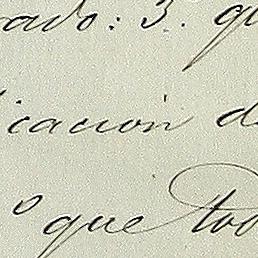 ado: 3. qu
icación de
o que tod